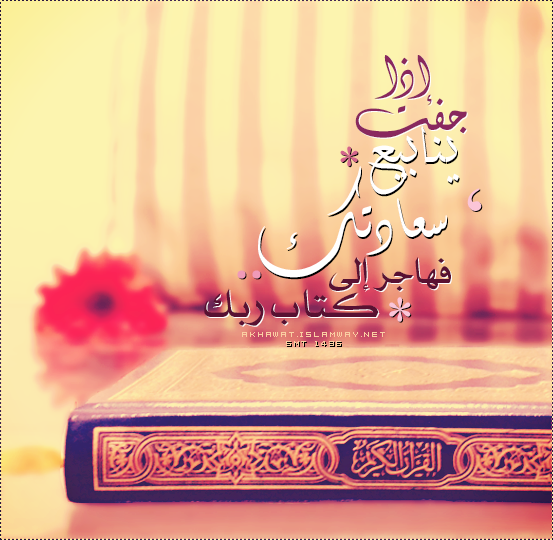 إذا
جفت
ينابيع
سعادتك
فهاجر إلى
كتاب ربك
AKHAWAT.ISLAMWAY.NET
SMT 1436
القرآن الكريم